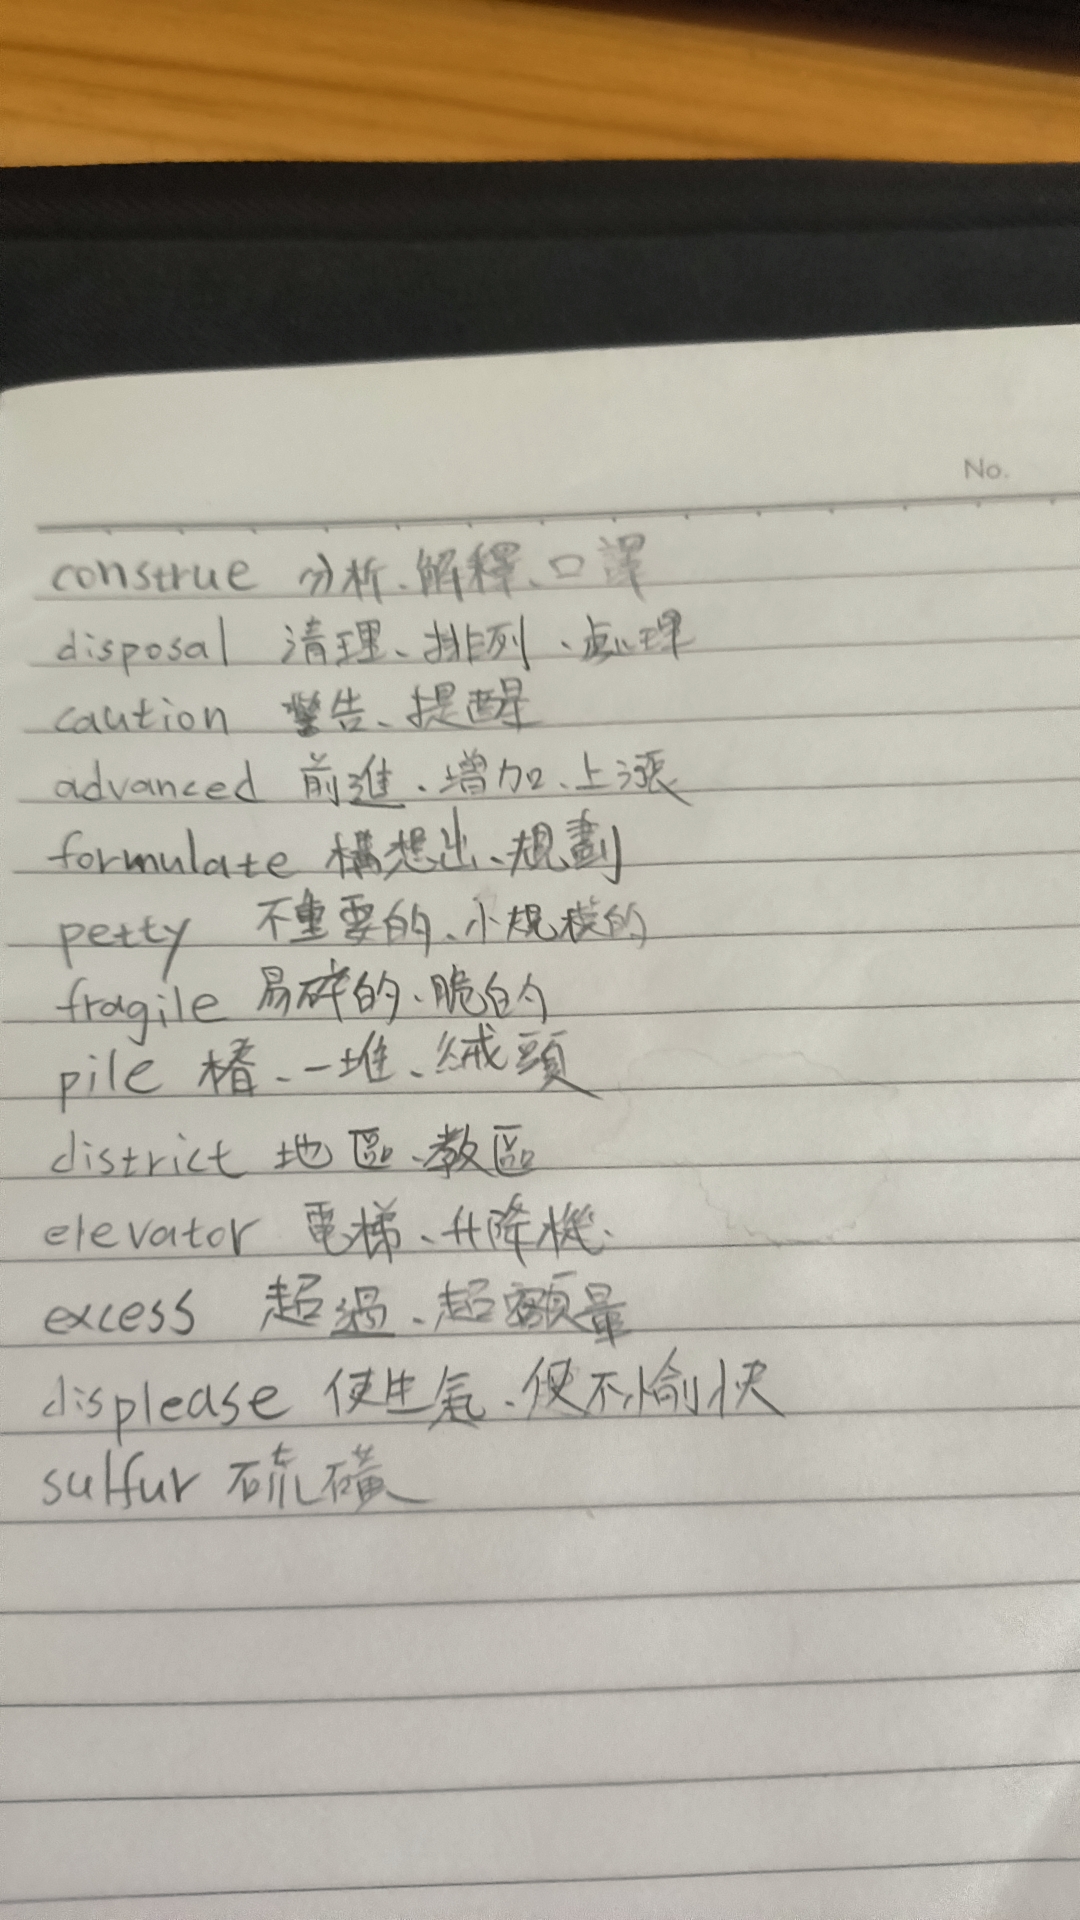 No.
construe 分析、解釋、口譯
disposal 清理、排列、處理
caution 警告、提醒
advanced 前進、增加、上漲
formulate 構想出、規劃
petty 不重要的、小規模的
fragile 易碎的、脆的
pile 樁、一堆、絨頭
district 地區、教區
elevator 電梯、升降機
excess 超過、超額量
displease 使生氣、使不愉快
sulfur 硫磺